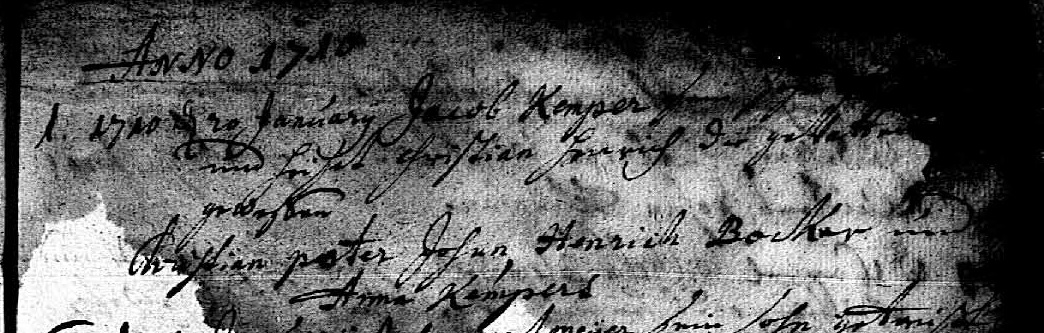 ANNO 1710
1. 1710 d 20 January Jacob Kemper sein
und heist Christian Henrich die gevattern
gewessen
Christian peter John, Henrich Bocker und
Anna Kempers
sein sohn getauft